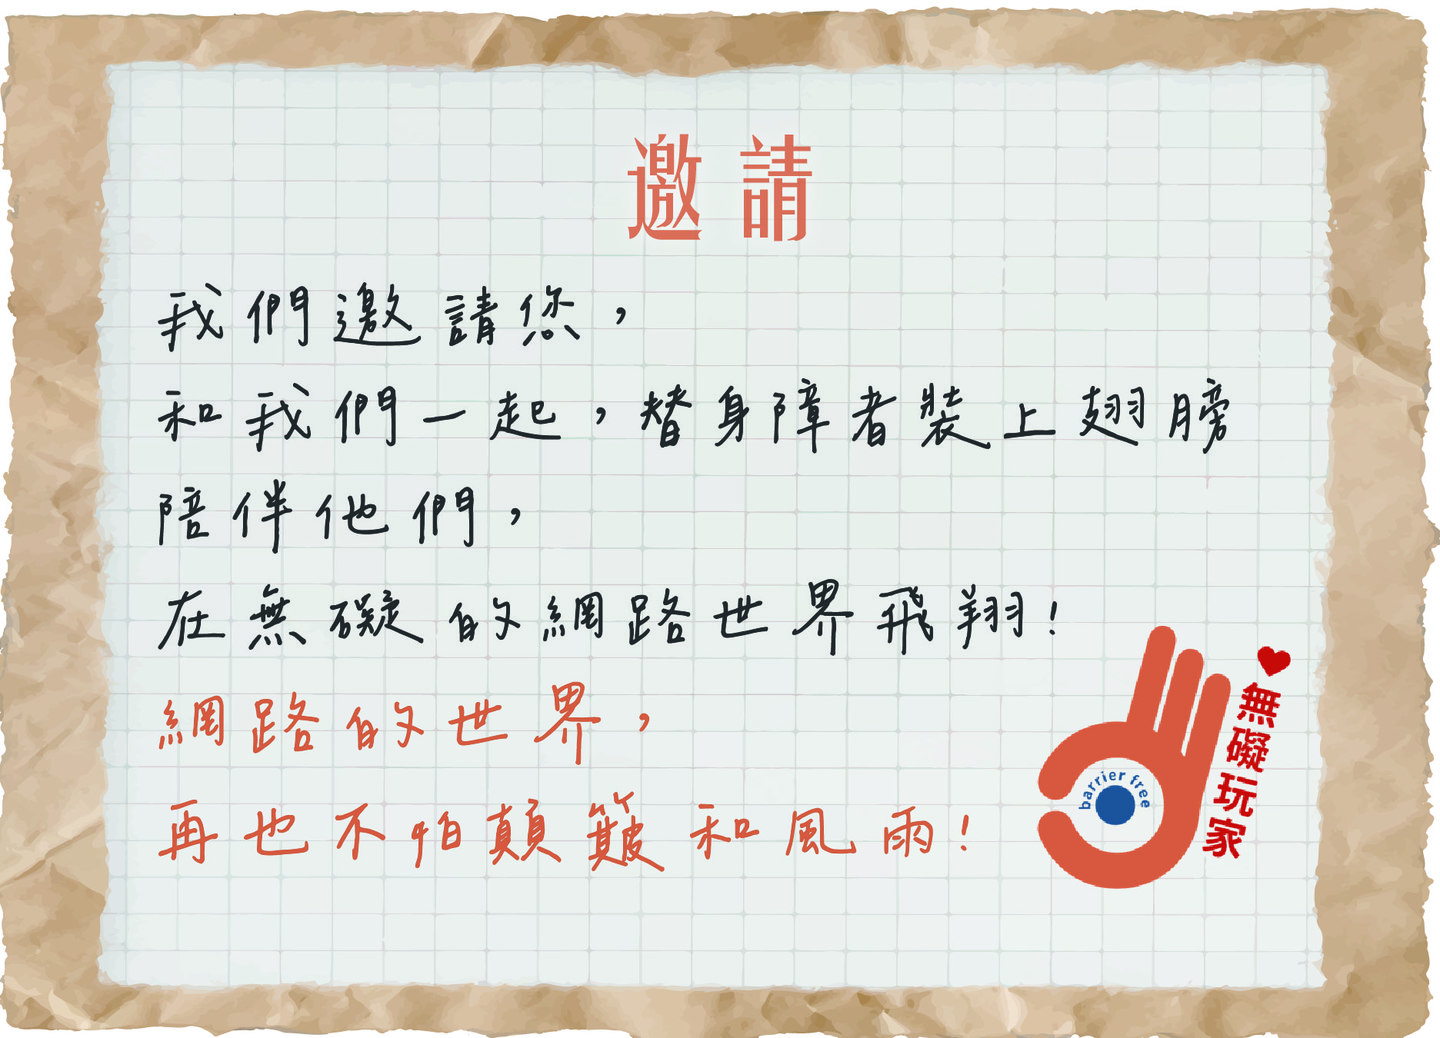 邀請
我們邀請您，
和我們一起，替身障者裝上翅膀
陪伴他們，
在無礙的網路世界飛翔！
網路的世界，
再也不怕顛簸和風雨！
barrier free
無礙玩家